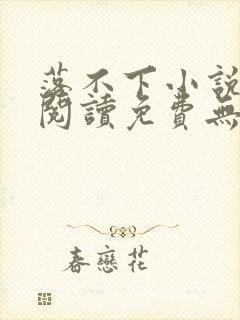 落不下小說
閱讀免費無
春戀花